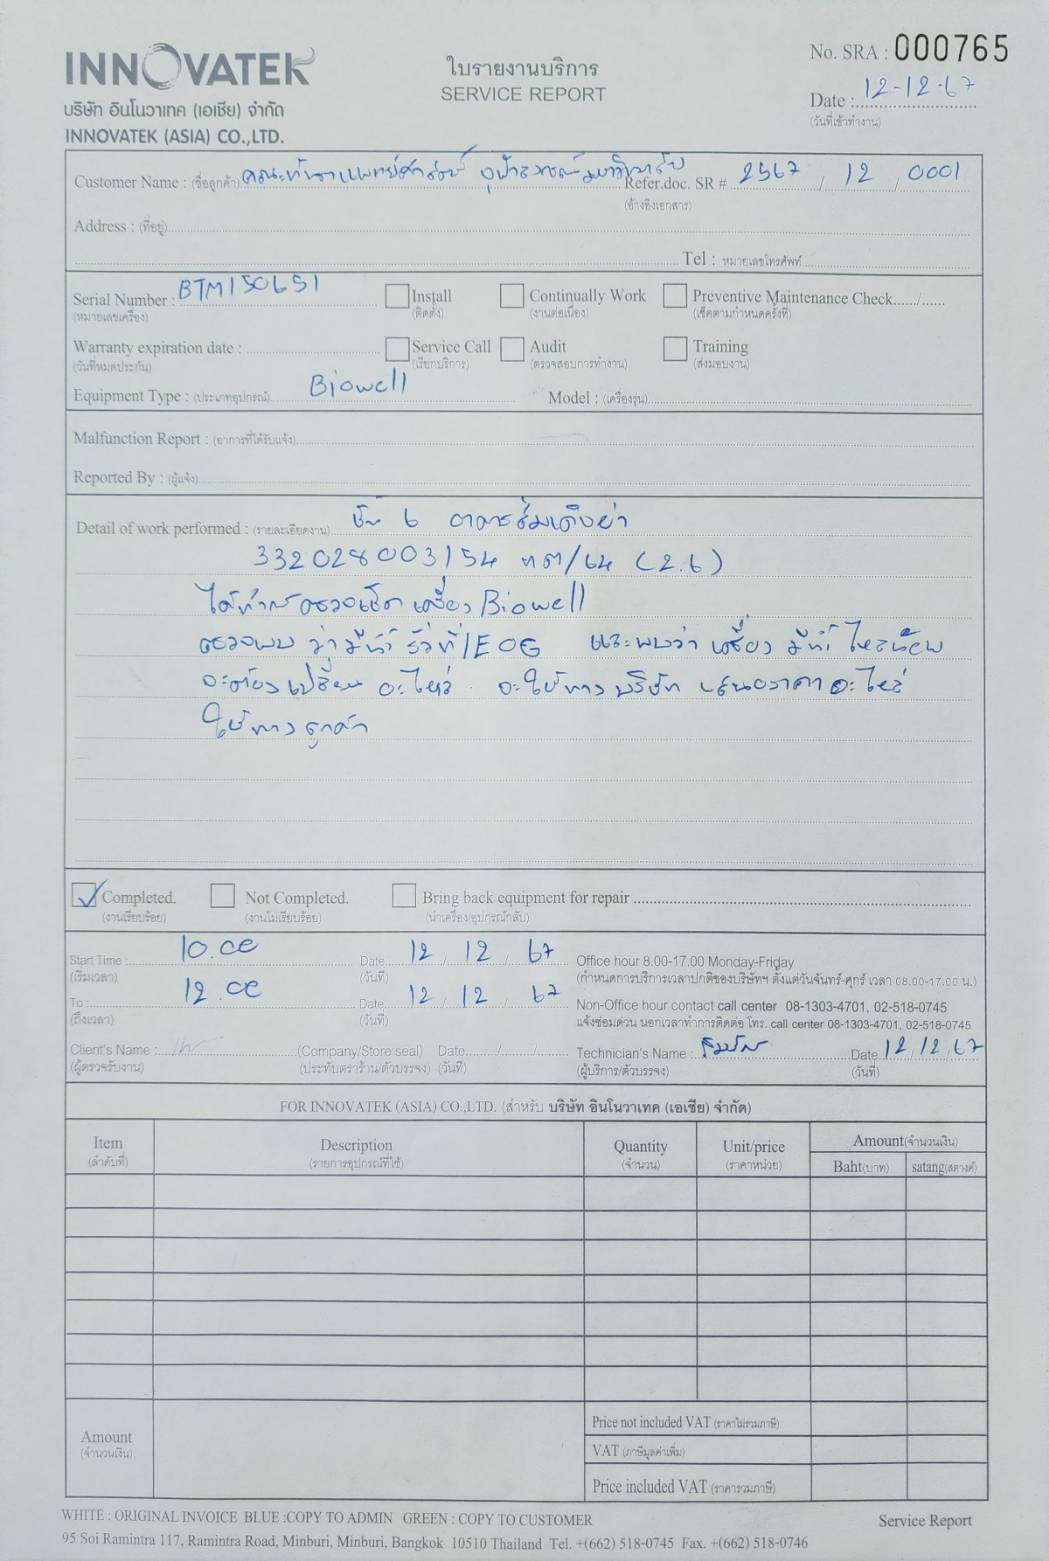 INNOVATEK
บริษัท อินโนวาเทค (เอเซีย) จำกัด
INNOVATEK (ASIA) CO.,LTD.
ใบรายงานบริการ
SERVICE REPORT
No. SRA : 000765
Date : 12-12-67
(วันที่เข้าทำงาน)
Customer Name : (ชื่อลูกค้า) คณะทันตแพทย์ศาสตร์ จุฬาลงกรณ์มหาวิทยาลัย Refer.doc. SR # 2567 / 12 / 0001
(อ้างอิงเอกสาร)
Address : (ที่อยู่)
Tel : หมายเลขโทรศัพท์
Serial Number : BTM150651 Install Continually Work Preventive Maintenance Check....../......
(หมายเลขเครื่อง) (ติดตั้ง) (งานต่อเนื่อง) (เช็คตามกำหนดครั้งที่)
Warranty expiration date : Service Call Audit Training
(วันที่หมดประกัน) (เรียกบริการ) (ตรวจสอบการทำงาน) (ส่งมอบงาน)
Equipment Type : (ประเภทอุปกรณ์) Biowell Model : (เครื่องรุ่น)
Malfunction Report : (อาการที่ได้รับแจ้ง)
Reported By : (ผู้แจ้ง)
Detail of work performed : (รายละเอียดงาน) ชั้น 6 อาคารสมเด็จย่า
332028003154 ทต/64 (2.6)
ได้ทำการตรวจเช็ค เครื่อง Biowell
ตรวจพบ ว่ามีน้ำ รั่วที่ EOG และพบว่า เครื่อง มีน้ำ ไหลน้อย
จะต้องเปลี่ยน อะไหล่ จะให้ทาง บริษัท เสนอราคา อะไหล่
ให้ทางลูกค้า
Completed. Not Completed. Bring back equipment for repair
(งานเรียบร้อย) (งานไม่เรียบร้อย) (นำเครื่อง/อุปกรณ์กลับ)
Start Time : 10.00 Date 12 / 12 / 67 Office hour 8.00-17.00 Monday-Friday
(เริ่มเวลา) (วันที่) (กำหนดการบริการเวลาปกติของบริษัทฯ ตั้งแต่วันจันทร์-ศุกร์ เวลา 08.00-17.00 น.)
To : 12.00 Date 12 / 12 / 67 Non-Office hour contact call center 08-1303-4701, 02-518-0745
(ถึงเวลา) (วันที่) แจ้งซ่อมด่วน นอกเวลาทำการติดต่อ โทร. call center 08-1303-4701, 02-518-0745
Client's Name : (Company/Store seal) Date....../....../...... Technician's Name : Date 12/12/67
(ผู้ตรวจรับงาน) (ประทับตราร้าน/ตัวบรรจง) (วันที่) (ผู้บริการ/ตัวบรรจง) (วันที่)
FOR INNOVATEK (ASIA) CO.,LTD. (สำหรับ บริษัท อินโนวาเทค (เอเซีย) จำกัด)
Item Description Quantity Unit/price Amount(จำนวนเงิน)
(ลำดับที่) (รายการอุปกรณ์ที่ใช้) (จำนวน) (ราคาหน่วย) Baht(บาท) satang(สตางค์)
Price not included VAT (ราคาไม่รวมภาษี)
Amount
(จำนวนเงิน)
VAT (ภาษีมูลค่าเพิ่ม)
Price included VAT (ราคารวมภาษี)
WHITE : ORIGINAL INVOICE BLUE :COPY TO ADMIN GREEN : COPY TO CUSTOMER
Service Report
95 Soi Ramintra 117, Ramintra Road, Minburi, Minburi, Bangkok 10510 Thailand Tel. +(662) 518-0745 Fax. +(662) 518-0746